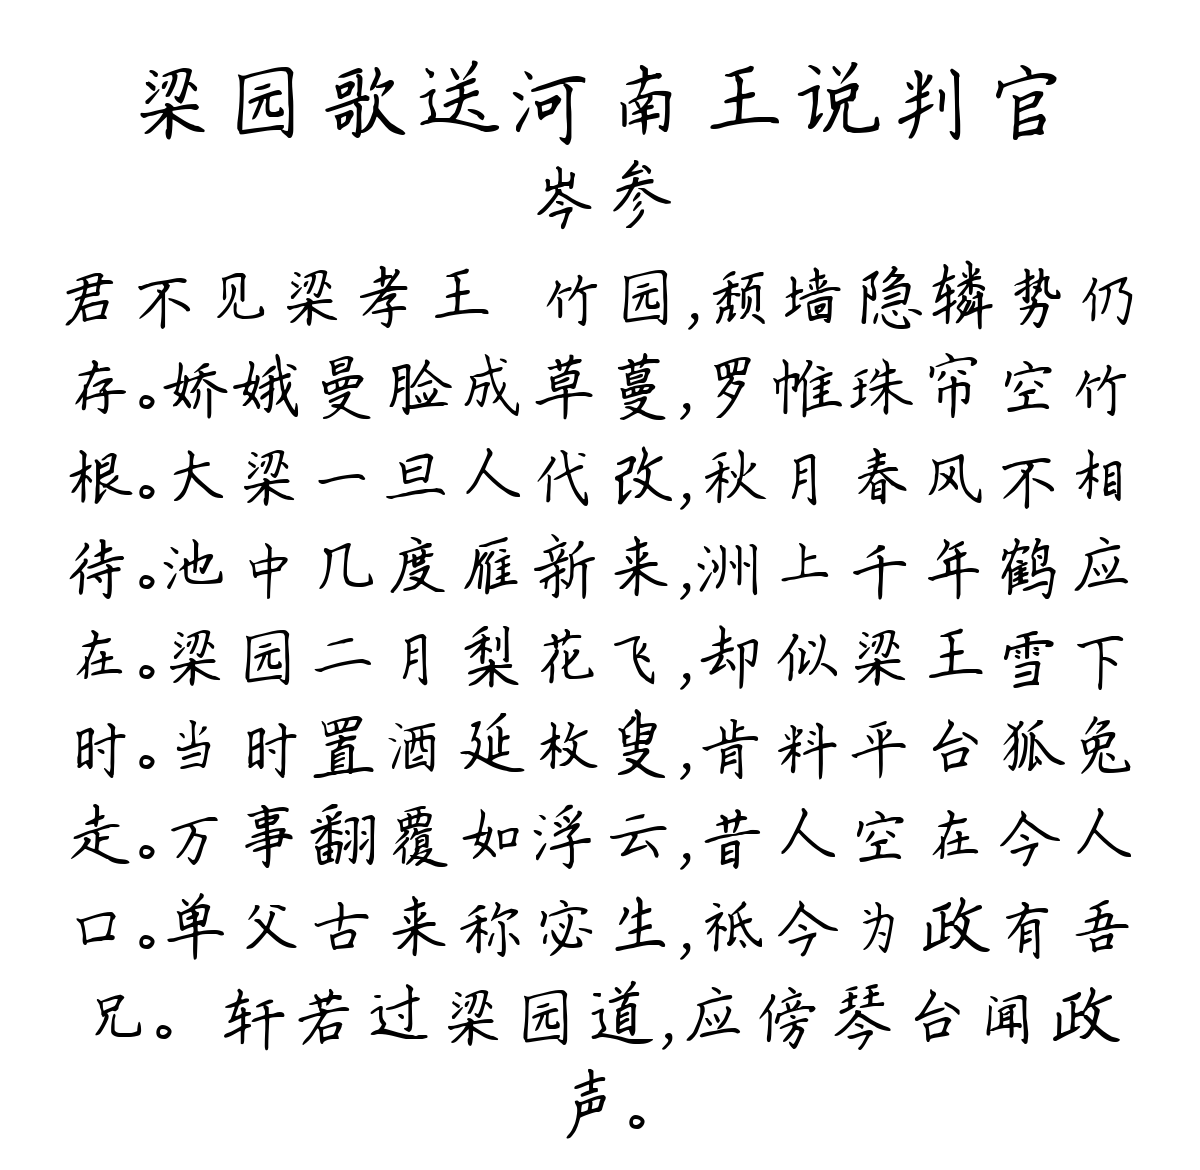 梁园歌送河南王说判官
岑参
君不见梁孝王 竹园,颓墙隐辚势仍
存。娇娥曼脸成草蔓,罗帷珠帘空竹
根。大梁一旦人代改,秋月春风不相
待。池中几度雁新来,洲上千年鹤应
在。梁园二月梨花飞,却似梁王雪下
时。当时置酒延枚叟,肯料平台狐兔
走。万事翻覆如浮云,昔人空在今人
口。单父古来称宓生,祗今为政有吾
兄。 轩若过梁园道,应傍琴台闻政
声。